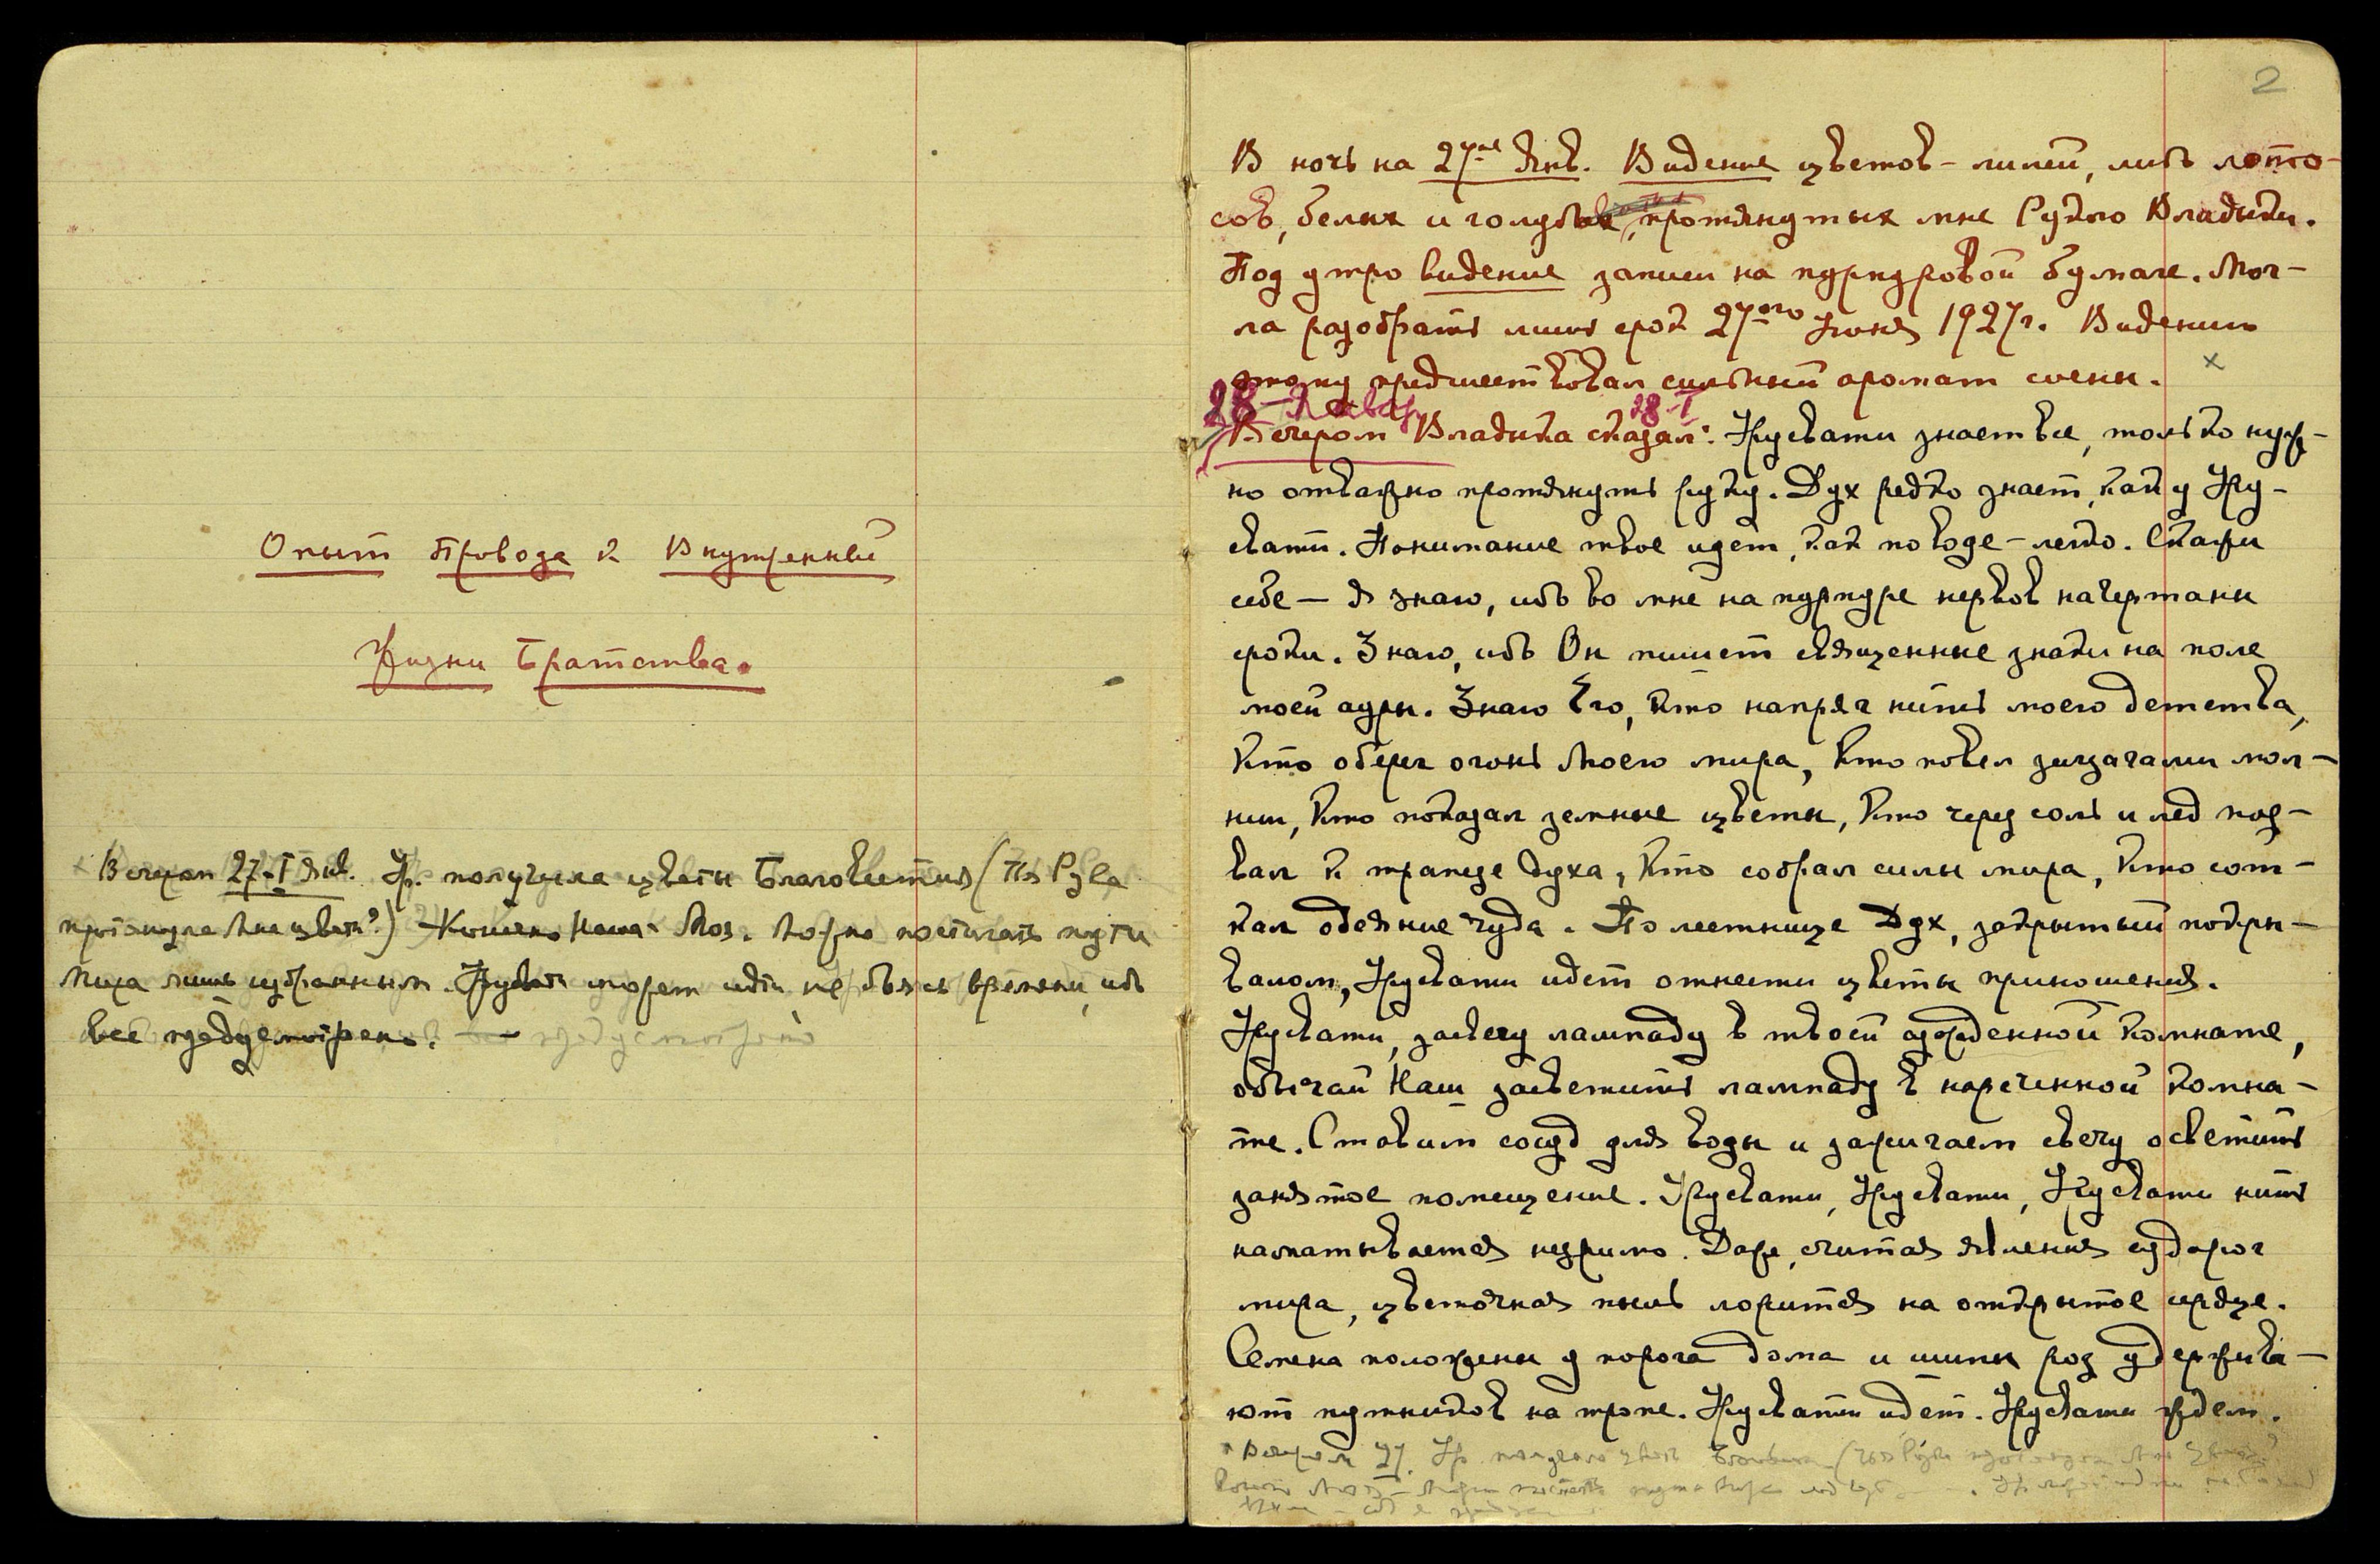 Опыт Провода к Внутренней
Жизни Братства.
Вечером 27-I Янв. Ур. получила цветы Благовестия (Чья Рука
протянула Мне цветы?) – Конечно Наша – Моя. Можно постигать пути
Мира лишь избранным. Урусвати может идти не боясь времени, ибо
все предусмотрено.
2
В ночь на 27ое Янв. Видение цветов – лилей, либо лото-
сов, белых и голубых, протянутых мне Рукою Владыки.
Под утро видение записи на пурпуровой бумаге. Мог-
ла разобрать лишь срок 27ого Июня 1927 г. Видению
этому предшествовал сильный аромат сосны. ×
28 – Январ 28-I
Вечером Владыка сказал: Урусвати знает все, только нуж-
но отважно протянуть руку. Дух редко знает, как у Уру-
свати. Понимание твое идет, как по воде – легко. Скажи
себе – я знаю, ибо во мне на пурпуре нервов начертаны
сроки. Знаю, ибо Он пишет священные знаки на поле
моей ауры. Знаю Его, Кто напряг нить моего детства,
Кто оберег огонь Моего мира, Кто повел зигзагами мол-
нии, Кто показал земные цветы, Кто через соль и лед поз-
вал к трапезе духа, Кто собрал силы мира, Кто сот-
кал одеяние чуда. По лестнице Дух, закрытый покры-
валом, Урусвати идет отнести цветы приношения.
Урусвати, засвечу лампаду в твоей сужденной комнате,
обычай Наш засветить лампаду в нареченной комна-
те. Ставим сосуд для воды и зажигаем свечу осветить
занятое помещение. Урусвати, Урусвати, Урусвати нить
наматывается незримо. Даже, считая явления судорог
мира, цветочная пыль ложится на открытое сердце.
Семена положены у порога дома и шипы роз удержива-
ют путников на тропе. Урусвати идет. Урусвати ждем.
Вечером 27. Ур. получила цветы